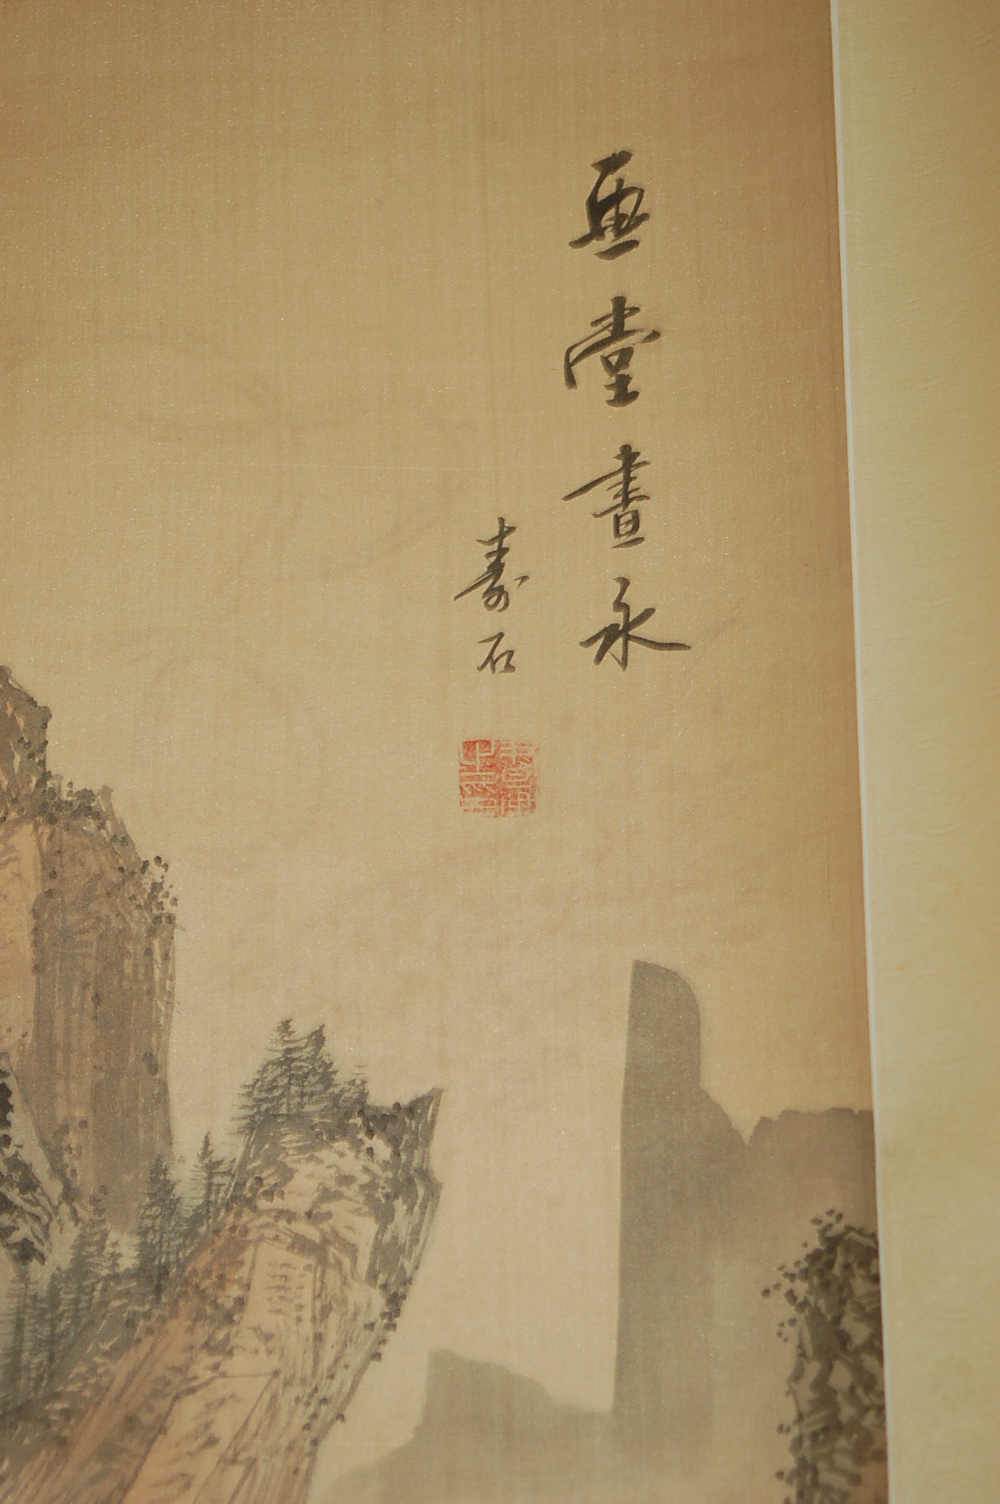 画堂晝永
壽石